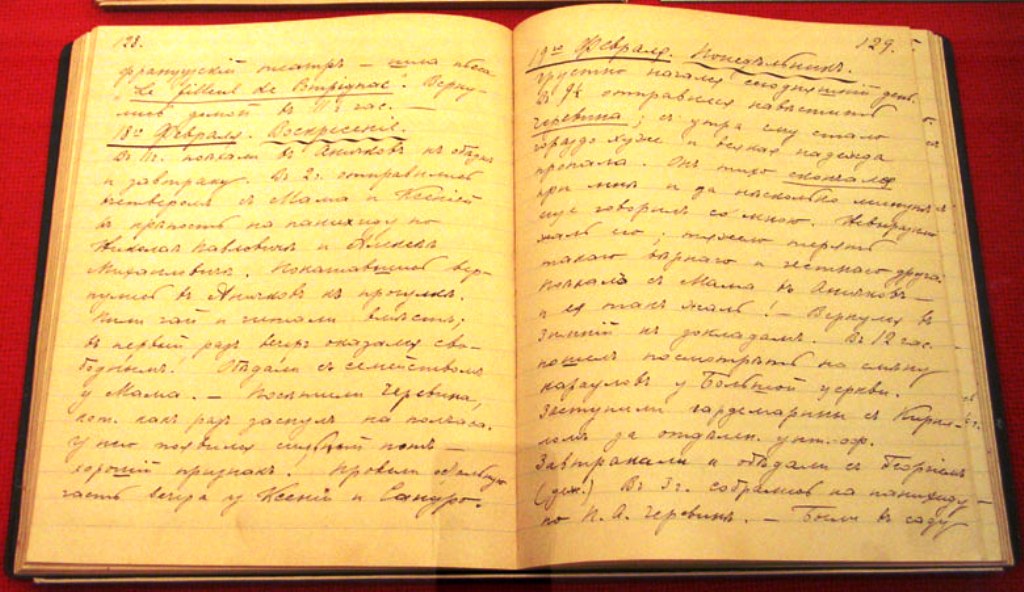 128.
французскій театръ – шла пьеса
"Le filleul de Pompignac". Верну-
лись домой въ 11¼ час. —
18го Февраля. Воскресеніе.
Въ 11г. поѣхали въ Аничковъ къ обѣднѣ
и завтраку. Въ 2 г. отправились
четверомъ съ Мама и Ксеніей
въ крѣпость на панихиду по
Николаѣ Павловичѣ и Алексѣѣ
Михайловичѣ. Покатавшись вер-
нулись въ Аничковъ къ прогулкѣ.
Пили чай и читали вмѣстѣ;
въ первый разъ вечеръ оказался сво-
боднымъ! Обѣдали съ семействомъ
у Мама. — Посѣтили Черевина,
кот. какъ разъ заснулъ на полчаса.
У него появился сильный потъ —
хорошій признакъ! Провели остальную
часть вечера у Ксеніи и Сандро.
129.
19го Февраля. Понедѣльникъ.
Грустно начался сегодняшній день.
Въ 9¼ отправился навѣстить
Черевина; съ утра ему стало
гораздо хуже и всякая надежда
пропала. Онъ тихо скончался
при мнѣ и за нѣсколько минутъ
еще говорилъ со мною. Невыразимо
жаль его; тяжело терять
такого вѣрнаго и честнаго друга.
Поѣхалъ съ Мама въ Аничковъ —
и ея такъ жаль! — Вернулся въ
Зимній къ докладамъ. Въ 12 час.
пошелъ посмотрѣть на смѣну
карауловъ у Большой церкви.
Заступили гардемарины съ Кирил-
ломъ за отдѣлен. унт.-оф.
Завтракали и обѣдали съ Георгіемъ
(деж.) Въ 3 г. собрались на панихиду
по П. А. Черевинѣ. — Были въ саду